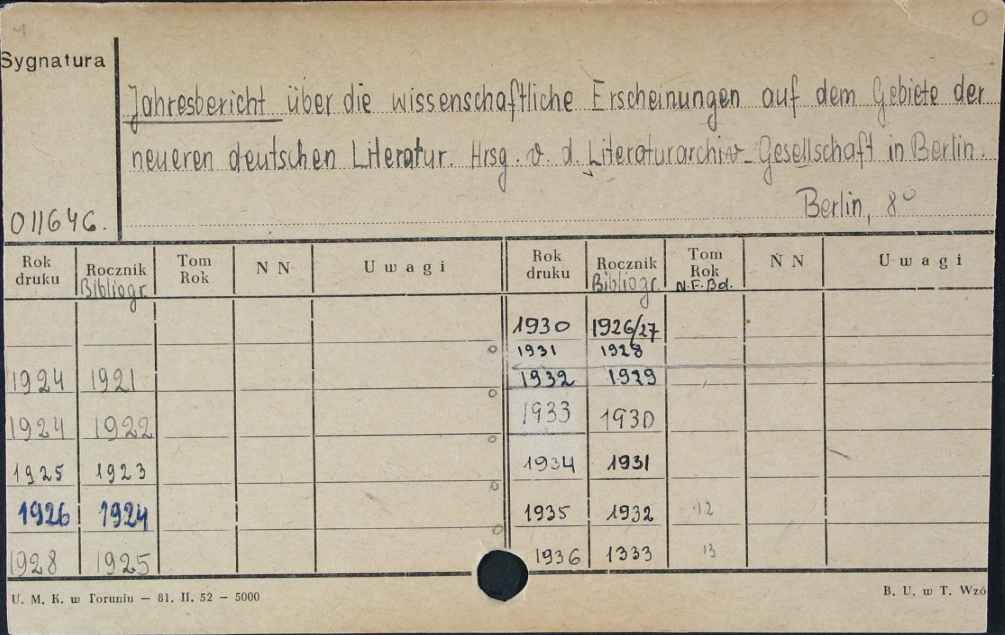 Sygnatura
Jahresbericht über die wissenschaftliche Erscheinungen auf dem Gebiete der
neueren deutschen Literatur. Hrsg. v. d. Literaturarchiv-Gesellschaft in Berlin.
Berlin, 8°
011646.
Rok druku Rocznik Bibliogr. Tom Rok N N Uwagi Rok druku Rocznik Bibliogr. Tom Rok N.F.Bd. N N Uwagi
1930 1926/27
1931 1928
1924 1921 1932 1929
1924 1922 1933 1930
1925 1923 1934 1931
1926 1924 1935 1932 12
1928 1925 1936 1333 13
U. M. K. w Toruniu — 81. II. 52 — 5000
B. U. w T. Wzó